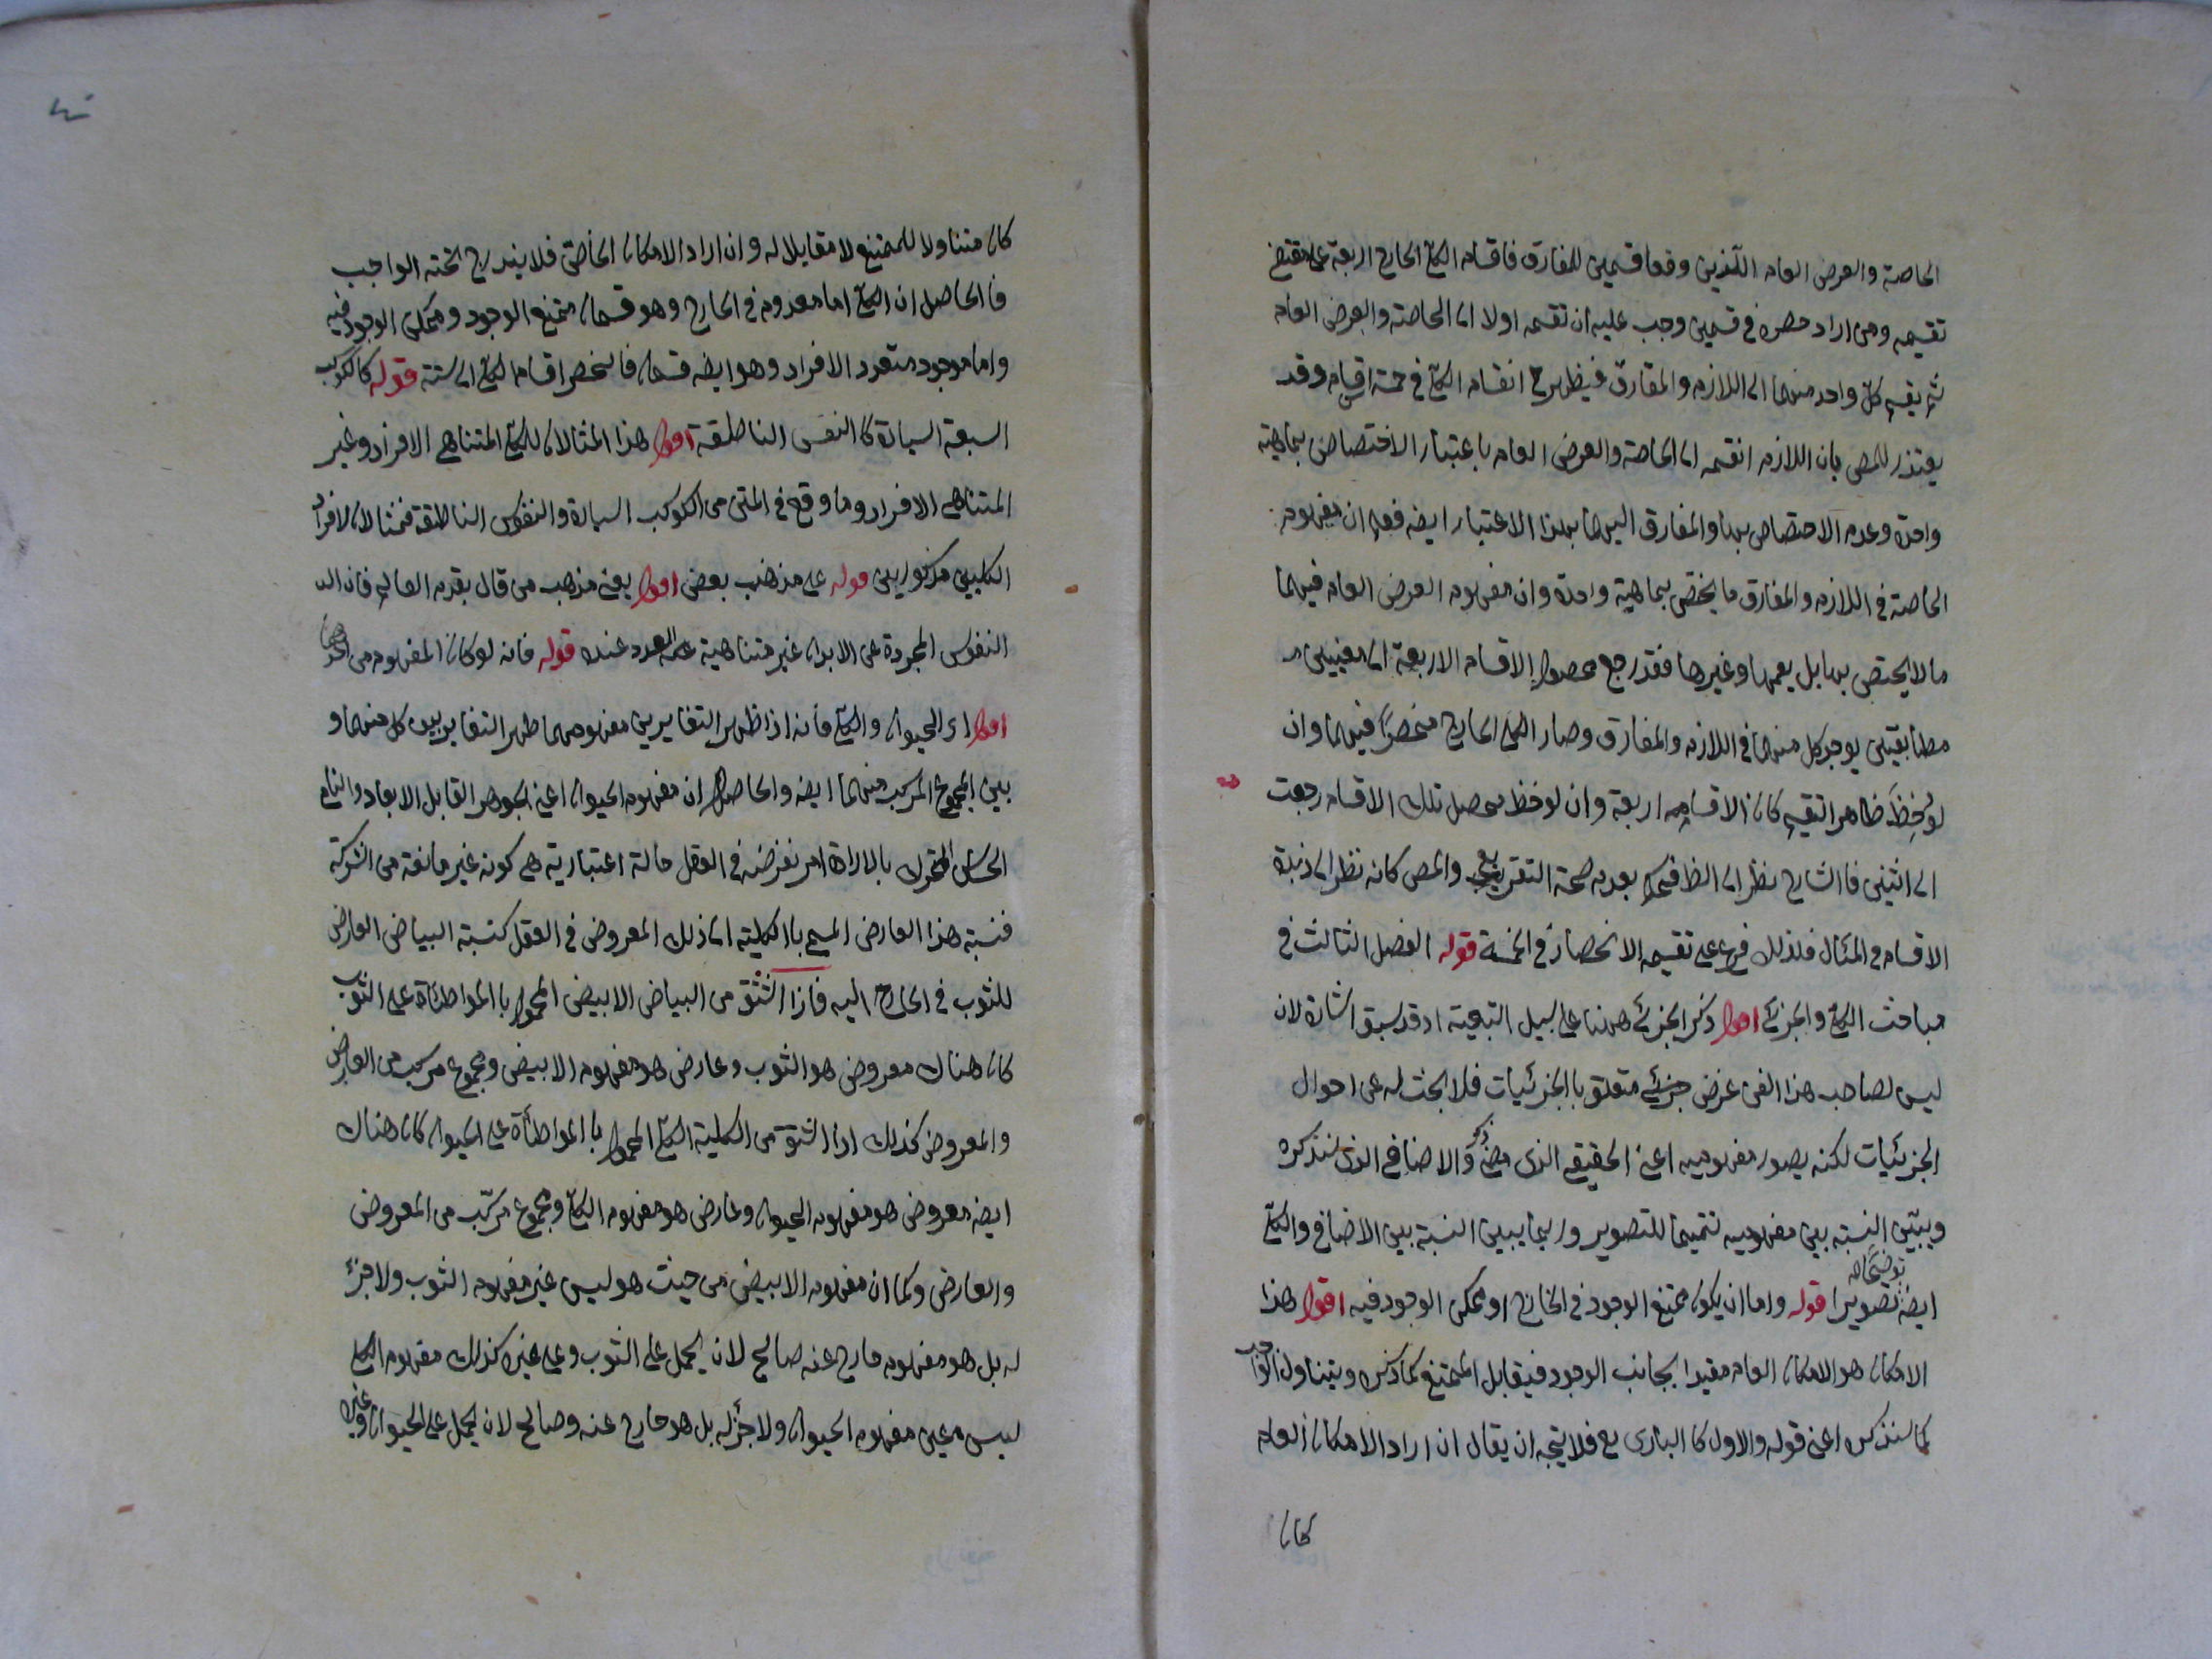 الخاصة والعرض العام اللذين وقعا قسمين للمفارق فاقسام الكلي الخارج اربعة على مقتضى
تقسيمه ومن اراد حصره في قسمين وجب عليه ان تقسمه اولا الى الخاصة والعرض العام
ثم يقسم كل واحد منهما الى اللازم والمفارق فيظهر ح انقسام الكلي في خمسة اقسام وقد
يعتذر للمص بان اللازم انقسم الى الخاصة والعرض العام باعتبار الاختصاص بماهية
واحدة وعدم الاختصاص بها والمفارق اليهما بهذا الاعتبار ايضه فعلم ان مفهوم
الخاصة في اللازم والمفارق ما يختص بماهية واحدة وان مفهوم العرض العام فيهما
ما لا يختص بها بل يعمها وغيرها فقد رجع محصول الاقسام الاربعة الى معنيين
مطابقتين يوجد كل منهما في اللازم والمفارق وصار الكلي الخارج منحصرا فيهما وان
لوخظ ظاهر التقسيم كان الاقسام اربعة وان لوخظ محصل تلك الاقسام رجعت
الى اثنين فالشارح نظر الى الظ فحكم بعدم صحة التفريع والمص كانه نظر الى زبدة
الاقسام في المئال فلذلك فرع على تقسيمه الانحصار في الخمسة قوله الفصل الثالث في
مباحث الكلي والجزئي اقول ذكر الجزئي ههنا على سبيل التبعية اذ قد سبق اشارة لان
ليس لصاحب هذا الفن غرض جزئي متعلق بالجزئيات فلا بحث له عن احوال
الجزئيات لكنه يصور مفهوميه اعني الحقيقي الذي مضى ذكره والاضافي الذي سنذكره
ويبين النسبة بين مفهوميه تتميما للتصوير وربما يبين النسبة بين الاضافي والكلي
توضيحا له
ايضه تصويرا قوله واما ان يكون ممتنع الوجود في الخارج او ممكن الوجود فيه اقول هذا
الامكان هو الامكان العام مقيدا بجانب الوجود فيقابل الممتنع كما ذكره ويتناول الواجب
كما سنذكره اعني قوله والاول كالباري تع فلا يتجه ان يقال ان اراد الامكان العام
كان
كان متناولا للممتنع لا مقابلا له وان اراد الامكان الخاص فلا يندرج تحته الواجب
فالحاصل ان الكلي اما معدوم في الخارج وهو قسمان ممتنع الوجود وممكن الوجود فيه
واما موجود متعدد الافراد وهو ايضه قسمان فانحصر اقسام الكلي الى ستة قوله كالكوكب
السبعة السيارة كالنفس الناطقة اقول هذا المثالان للكلي المتناهي الافراد وغير
المتناهي الافراد وما وقع في المتن من الكوكب السيارة والنفوس الناطقة فمثالان لافراد
الكليين مذكورين قوله على مذهب بعض اقول يعني مذهب من قال بقدم العالم فان
النفوس المجردة عن الابدان غير متناهية العدد عنده قوله فانه لو كان المفهوم من احدهما
اقول اي الحيوان والكلي فانه اذا ظهر التغاير بين مفهوميهما ظهر التغاير بين كل منهما و
بين المجموع المركب منهما ايضه والحاصل ان مفهوم الحيوان اعني الجوهر القابل الابعاد والنامي
الحساس المتحرك بالارادة امر نفرضه في العقل حالة اعتبارية هي كونه غير مانعة من الشركة
فنسبة هذا العارض المسمى بالكلية الى ذلك المعروض في العقل كنسبة البياض العارض
للثوب في الخارج اليه فاذا اشتق من البياض الابيض المحمول بالمواطاة على الثوب
كان هناك معروض هو الثوب وعارض هو مفهوم الابيض ومجموع مركب من العارض
والمعروض كذلك اذا اشتق من الكلية الكلي المحمول بالمواطأة على الحيوان كان هناك
ايضه معروض هو مفهوم الحيوان وعارض هو مفهوم الكلي ومجموع مركب من المعروض
والعارض وكما ان مفهوم الابيض من حيث هو ليس عين مفهوم الثوب ولا جزء
له بل هو مفهوم خارج عنه صالح لان يحمل على الثوب وعلى غيره كذلك مفهوم الكلي
ليس عين مفهوم الحيوان ولا جزء له بل هو خارج عنه وصالح لان يحمل على الحيوان وغيره